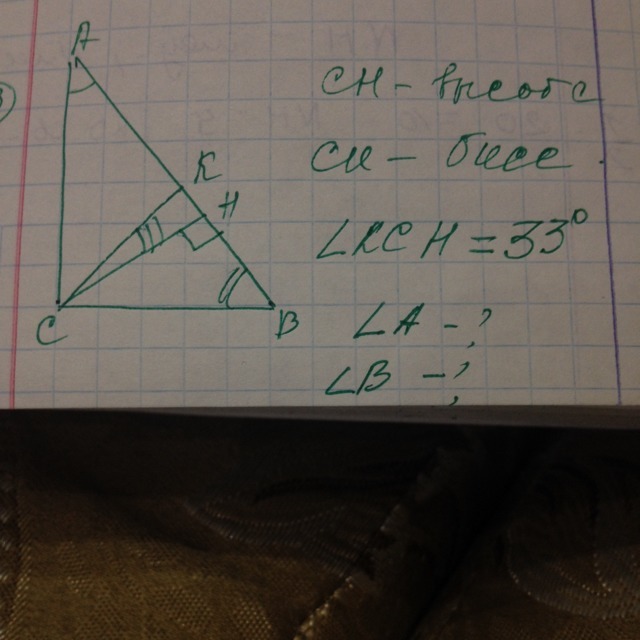 A
K
H
C
B
CH - высота
CK - бисс.
∠KCH = 33°
∠A - ?
∠B - ?